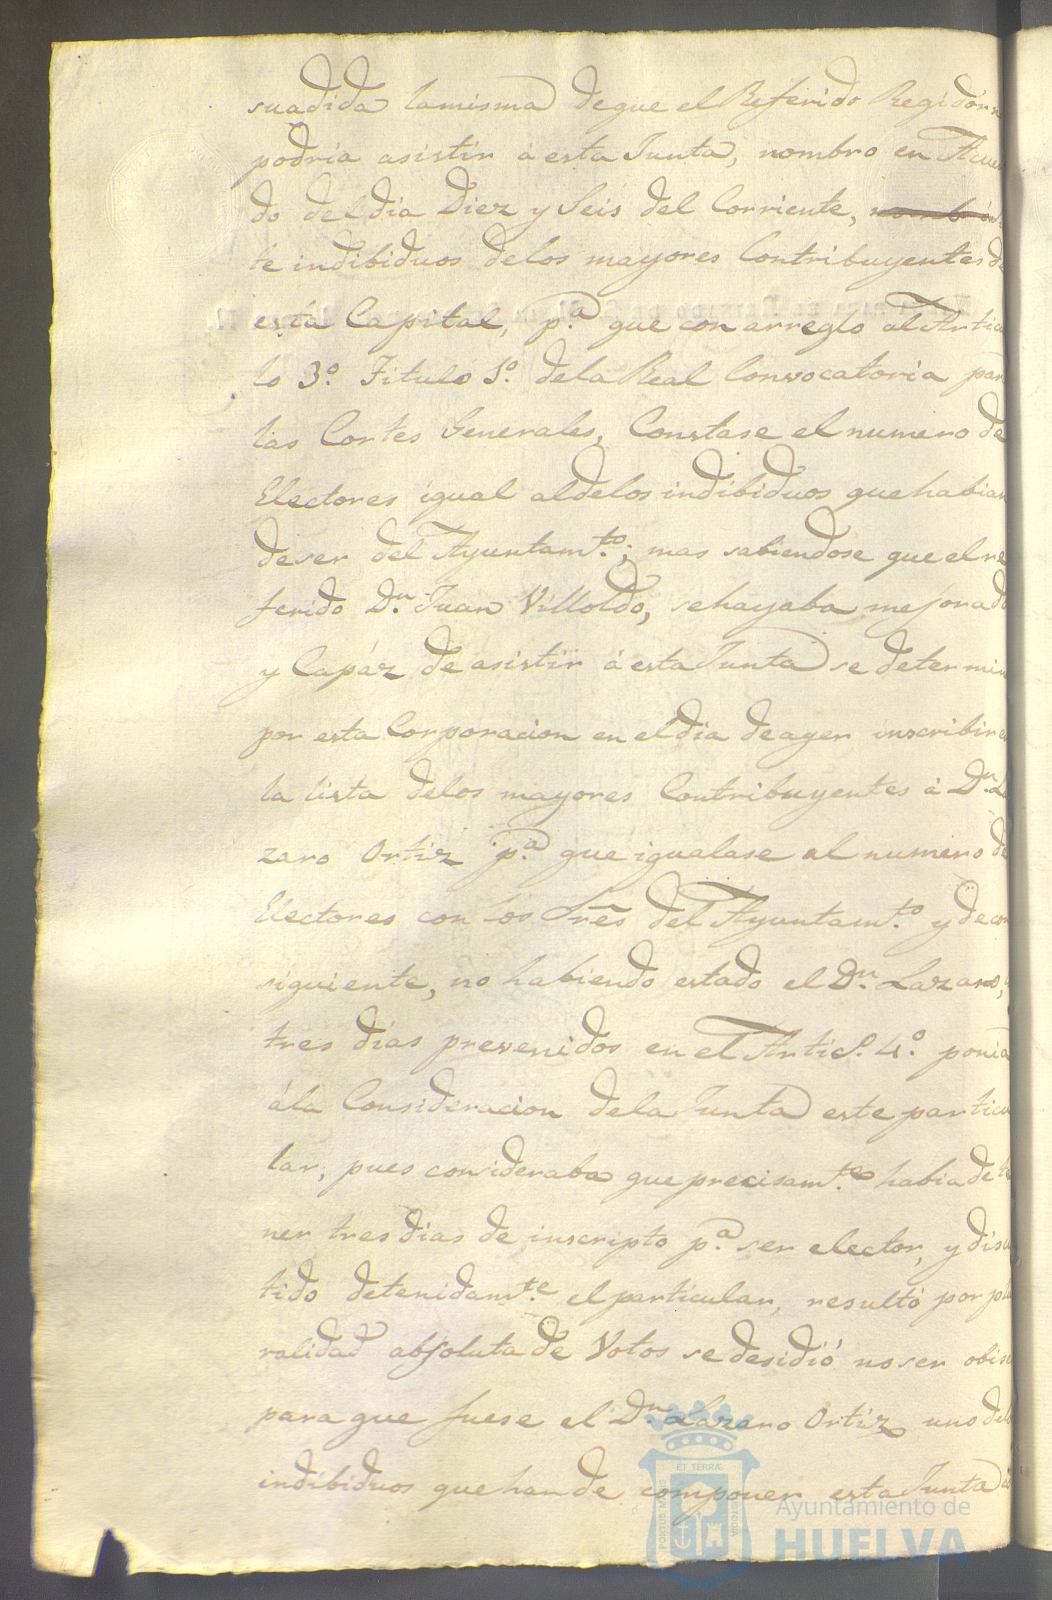 suadida lamisma deque el Referido Regidor n
podria asistir á esta Junta, nombro en Acuer
do del dia Diez y Seis del Corriente,
te indibiduos delos mayores Contribuyentes de
esta Capital, p.ª que con arreglo al Artic
lo 3º. Titulo 1º. dela Real Convocatoria par
las Cortes Generales, Constase el numero de
Electores igual aldelos indibiduos que habian
deser del Ayuntam.to; mas sabiendose que el re
ferido D.n Juan Villoldo, sehayaba mejorado
y Capáz de asistir á esta Junta se determin
por esta Corporacion en eldia deayer inscribir e
la lista delos mayores Contribuyentes á D.n La
zaro Ortiz p.ª que igualase al numero de
Electores con los Sres del Ayuntam.to y de con
siguiente, no habiendo estado el D.n Lazaro,
tres dias prevenidos en el Artic.º 4º. ponia
ála Consideracion dela Junta este particu
lar, pues consideraba que precisam.te habia de te
ner tres dias de inscripto p.ª ser elector, y discu
tido detenidam.te el particular, resultó por plu
ralidad absoluta de Votos se desidió no ser obise
para que fuese el D.n Lazaro Ortiz uno delo
indibiduos que han de componer esta Junta
ET TERRÆ
PORTUS MARIS
CUSTODIA
Ayuntamiento de
HUELVA